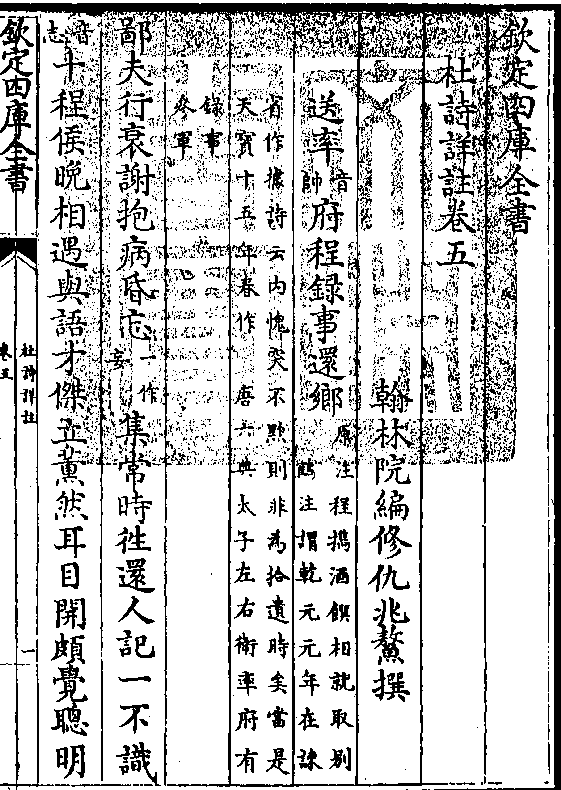 欽定四庫全書
杜詩詳註卷五
翰林院編修仇兆鰲撰
送率音帥府程録事還鄉原注程攜酒饌相就取别
鶴注謂乾元元年在諫
省作據詩云内愧突不黔則非為拾遺時矣當是
天寳十五年春作 唐六典太子左右衛率府有
録事
參軍
鄙夫行衰謝抱病昏忘一作妄集常時徃還人記一不識
音志十程侯晚相遇與語才傑立薫然耳目開頗覺聰明
欽定四庫全書
杜詩詳註
卷五
一